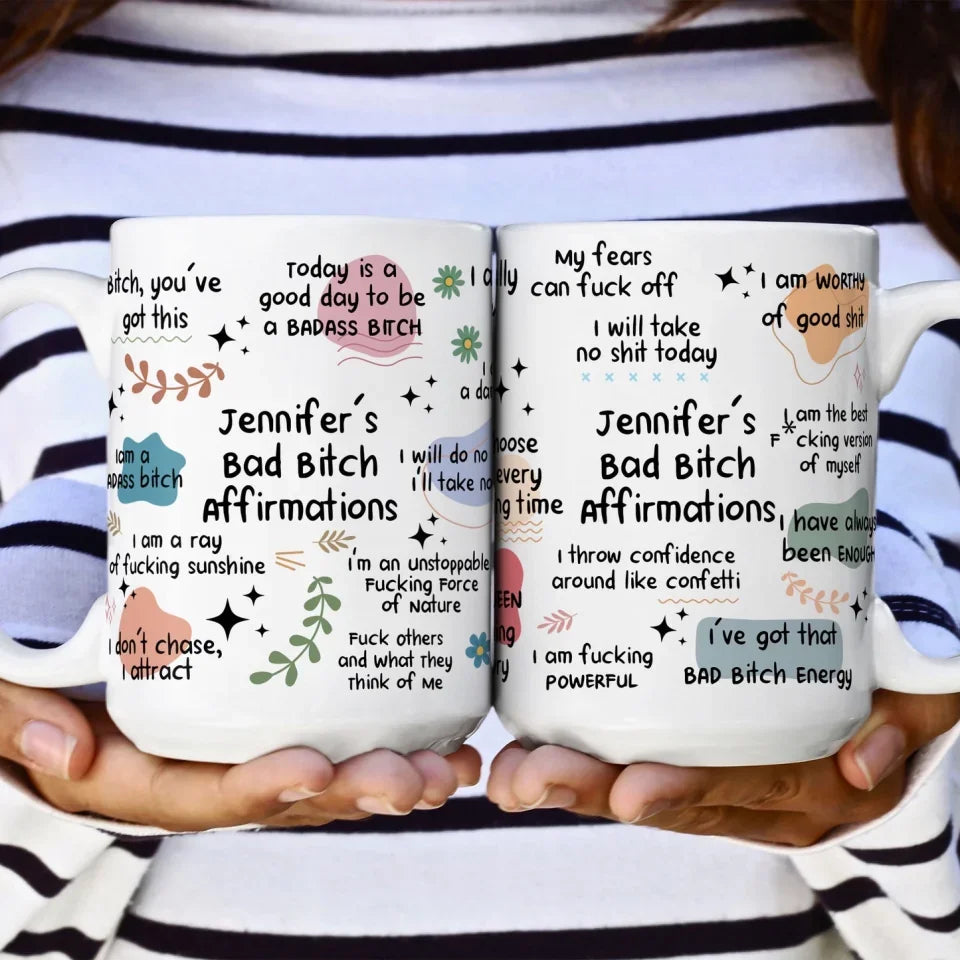 Bitch, you've
got this
Today is a
good day to be
a BADASS BITCH
I am a
BADASS bitch
Jennifer's
Bad Bitch
Affirmations
I will do no
i'll take no
I am a ray
of fucking sunshine
i'm an unstoppable
Fucking Force
of Nature
I don't chase,
I attract
Fuck others
and what They
Think of Me
My fears
can fuck off
I will take
no shit today
I am WORTHY
of good shit
every
time
Jennifer's
Bad Bitch
Affirmations
I am the best
F*cking version
of myself
I have always
been ENOUGH
I throw confidence
around like confetti
I am fucking
POWERFUL
i've got that
BAD Bitch Energy